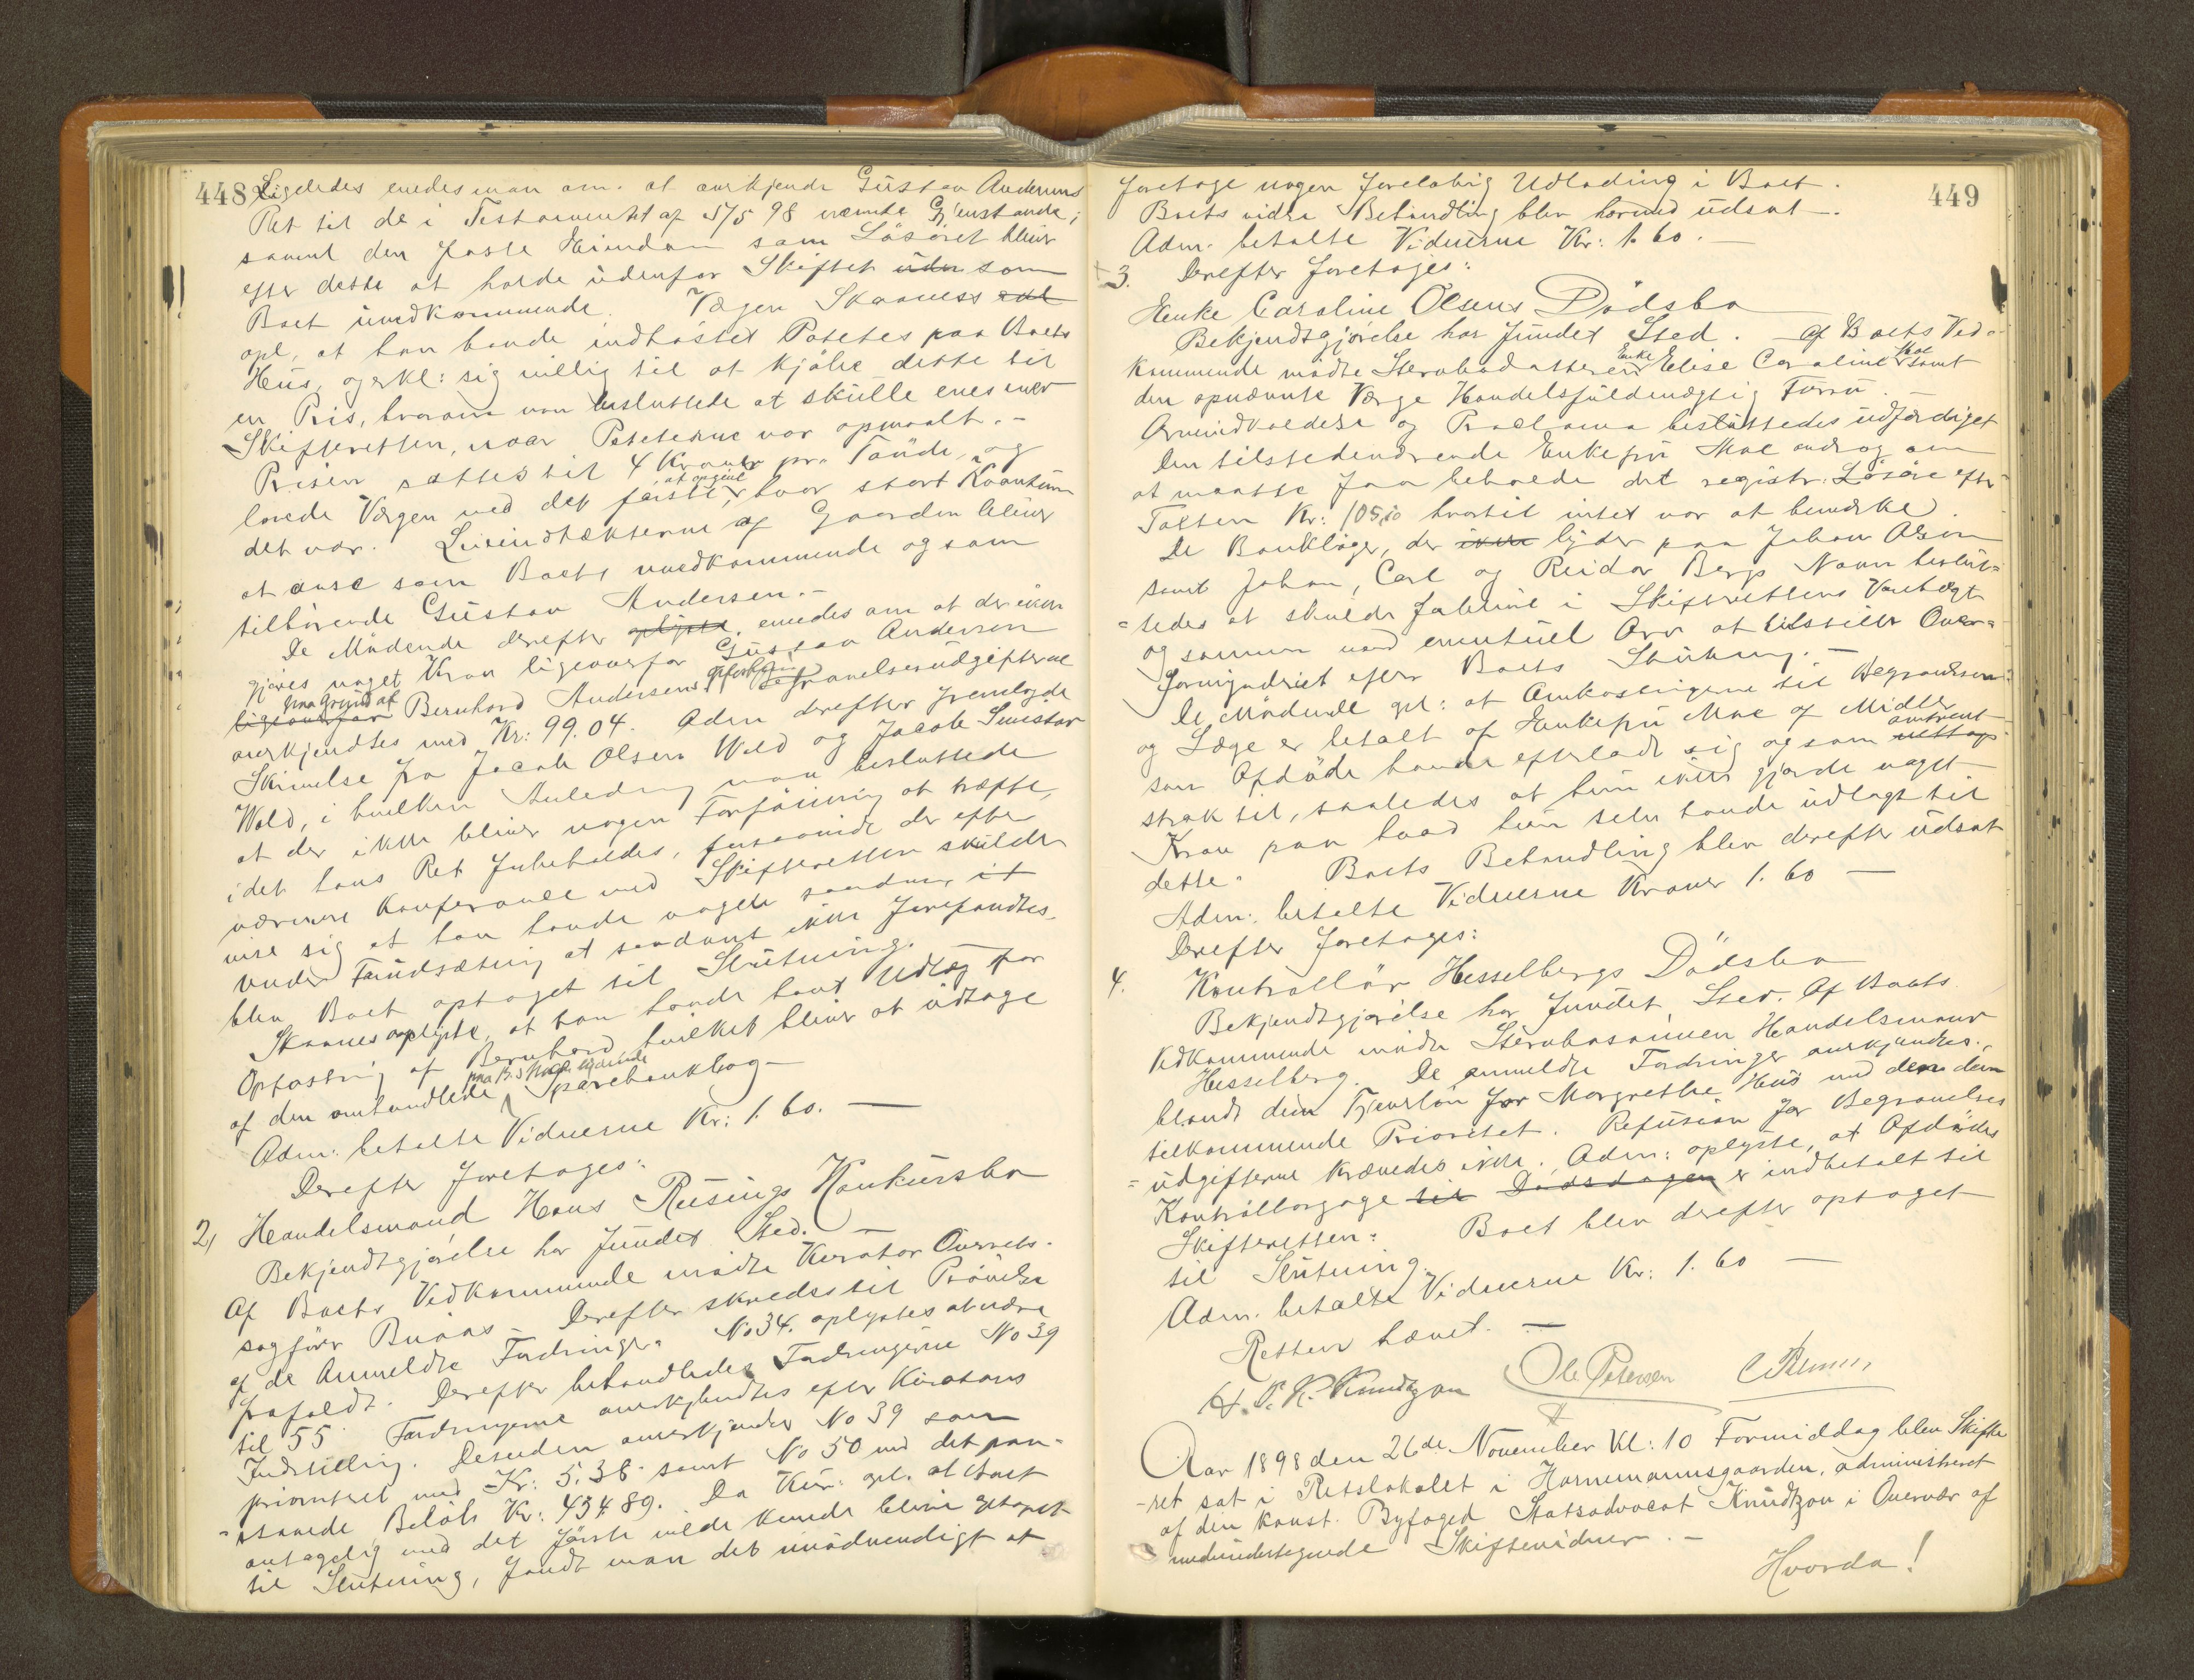 448 Ligeledes enedes man om at anerkjende Gustav Andersens
Ret til de i Testamentet af 5/5 98 nævnte Gjenstande;
samt den faste Eiendom som Løsøret bliver
efter dette at holde udenfor Skiftet uden som
Boet uvedkommende. Vægen Skaaness
opl, at han havde indhøstet Potetes paa Boets
Hus, og erkl: sig villig til at kjøbe dette til
en Pris, hvorom man besluttede at skulle enes med
Skifteretten, naar Poteterne var opmaalt. -
Prisen sattes til 4 Kroner pr. Tønde, og
lovede Værgen med det første at opgive hvor stort Kvantum
det var. Leieindtækterne af Gaarden bliver
at anse som Boets uvedkommende og som
tilhørende Gustav Andersen. -
De Mødende derefter oplyste enedes om at der ikke
gjøres noget Krav ligeoverfor Gustav Andersen
ligeoverfor paa Grund af Bernhard Andersens Begravelsesudgifterne
anerkjendtes med Kr: 99.04. Adm derefter fremlagde
Skrivelse fra Jacob Olsen Wold og Jacob
Wold, i hvilken Anledning man besluttede
at der ikke bliver nogen Forføining at træffe,
idet hans Ret forbeholdes, forsaavidt der efter
nærmere Konferance med Skifteretten skulde
vise sig at han havde nogen saadan, it
Under Forudsætning at saadant ikke forefandtes
blev Boet optaget til Slutning.
Skaanes oplyste, at han havde havt Udlæg for
Opfostring af Bernhard hvilket bliver at udtage
af den omhandlede Sparebankbog -
Adm: betalte Vidnerne Kr: 1.60. —
Derefter foretoges:
2, Handelsmand Hans Rusings Konkursbo
Bekjendtgjørelse har fundet Sted. —
Af Boets Vedkommende mødte Kurator Overrets-
sagfører Buaas - Derefter skredes til Prøvelse
af de Anmeldte Fordringer. No 34. oplystes at være
frafaldt. Derefter behandledes Fordringerne No 39
til 55. Fordringerne anerkjendtes efter Kurators
Indstilling. Desuden anerkjendes No 39 som
prioriteret med Kr: 5.36 samt No 50 med det paa-
-staaede Beløb Kr: 434.89. Da Kur: opl. at Boet
antagelig med det første vilde kunde blive optaget
til Slutning, fandt man det unødvendigt at
449
foretage nogen foreløbig Udlodning i Boet.
Boets videre Behandling blev hermed udsat.
Adm. betalte Vidnerne Kr: 1.60. —
3. Derefter foretoges:
Enke Caroline Olsens Dødsbo
Bekjendtgjørelse har fundet Sted. - Af Boets Ved-
kommende mødte Stervbodatteren Enke Elise Caroline Moe samt
den opnævnte Værge Handelsfuldmægtig
Arveindkaldelse og Proclama besluttedes udfærdiget
Den tilstedeværende Enkefru Moe androg om
at maatte faa beholde det registr: Løsøre efter
Taksten Kr: 105,10 hvortil intet var at bemærke.
De Bankbøger, der ikke lyder paa Johan Olsen
samt Johan, Carl og Reidar Bergs Navn beslut-
-tedes at skulde forblive i Skifterettens Varetægt
og sammen med eventuel Arv at tilstille Over-
formynderiet efter Boets Slutning. -
De Mødende opl: at Omkostningerne til Begravelsen
og Læge er betalt af Enkefru Moe af Midler
som Afdøde havde efterladt sig og som omtrent nettop
strak til, saaledes at hun ikke gjorde noget
Krav paa hvad hun selv havde udlagt til
dette. Boets Behandling blev derefter udsat
Adm: betalte Vidnerne Kroner 1.60 —
Derefter foretoges:
4. Kontrollør Hesselbergs Dødsbo
Bekjendtgjørelse har fundet Sted. Af Boets
Vedkommende mødte Stervbosønnen Handelsmand
Hesselberg. De anmeldte Fordringer anerkjendtes,
blandt dem Tjenerløn for Margrethe Hus med den dem
tilkommende Prioritet. Refusion for Begravelses
-udgifterne krævedes ikke. Adm: oplyste, at Afdødes
Kontrollørgage til Dødsdagen er indbetalt til
Skifteretten. Boet blev derefter optaget
til Slutning.
Adm. betalte Vidnerne Kr: 1.60 —
Retten hævet. —
H. P. K. Knudtzon Ole Petersen
Aar 1898 den 26de November Kl: 10 Formiddag blev Skifte
-ret sat i Retslokalet i Hornemannsgaarden, administreret
af den konst. Byfoged Statsadvocat Knudtzon i Overvær af
medundertegnede Skiftevidner. -
Hvorda!